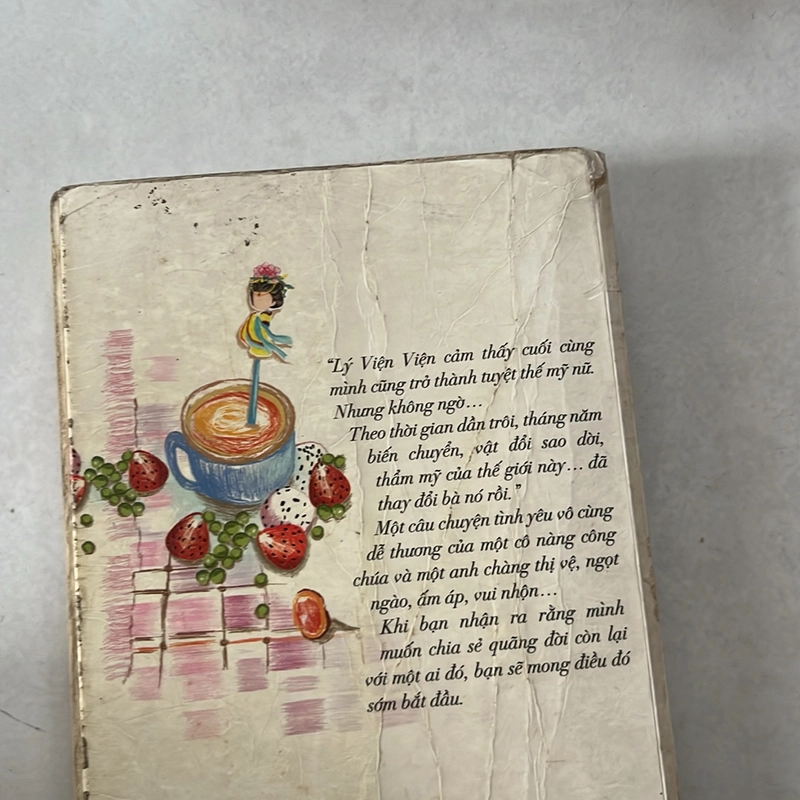 “Lý Viện Viện cảm thấy cuối cùng
mình cũng trở thành tuyệt thế mỹ nữ.
Nhưng không ngờ...
Theo thời gian dần trôi, tháng năm
biến chuyển, vật đổi sao dời,
thẩm mỹ của thế giới này... đã
thay đổi bà nó rồi.”
Một câu chuyện tình yêu vô cùng
dễ thương của một cô nàng công
chúa và một anh chàng thị vệ, ngọt
ngào, ấm áp, vui nhộn...
Khi bạn nhận ra rằng mình
muốn chia sẻ quãng đời còn lại
với một ai đó, bạn sẽ mong điều đó
sớm bắt đầu.